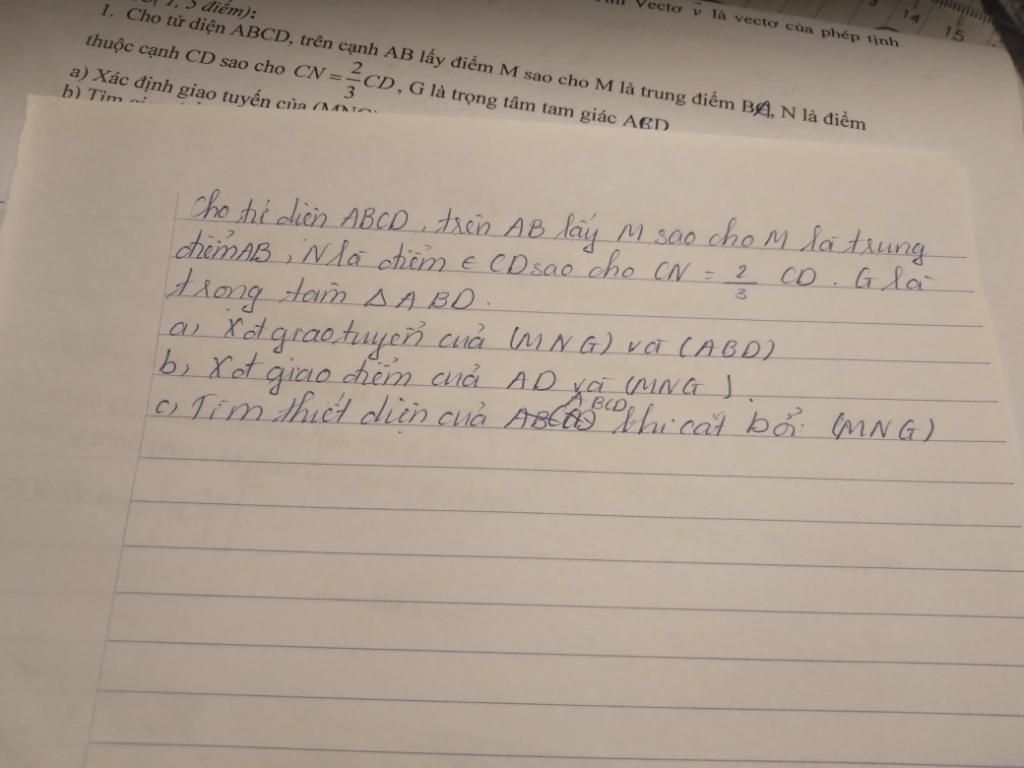 5 điểm):
Vectơ v là vectơ của phép tịnh
14 15
1. Cho tứ diện ABCD, trên cạnh AB lấy điểm M sao cho M là trung điểm BA, N là điểm
thuộc cạnh CD sao cho CN = 2/3 CD, G là trọng tâm tam giác ACD
a) Xác định giao tuyến của (MNG)
b) Tìm
Cho tứ diện ABCD, trên AB lấy M sao cho M là trung
điểm AB, N là điểm ∈ CD sao cho CN = 2/3 CD. G là
trọng tâm △ABD.
a, Xđt giao tuyến cuả (MNG) và (ABD)
b, Xđt giao điểm cuả AD và (MNG).
c, Tìm thiết diện cuả ABCD khi cắt bởi (MNG)